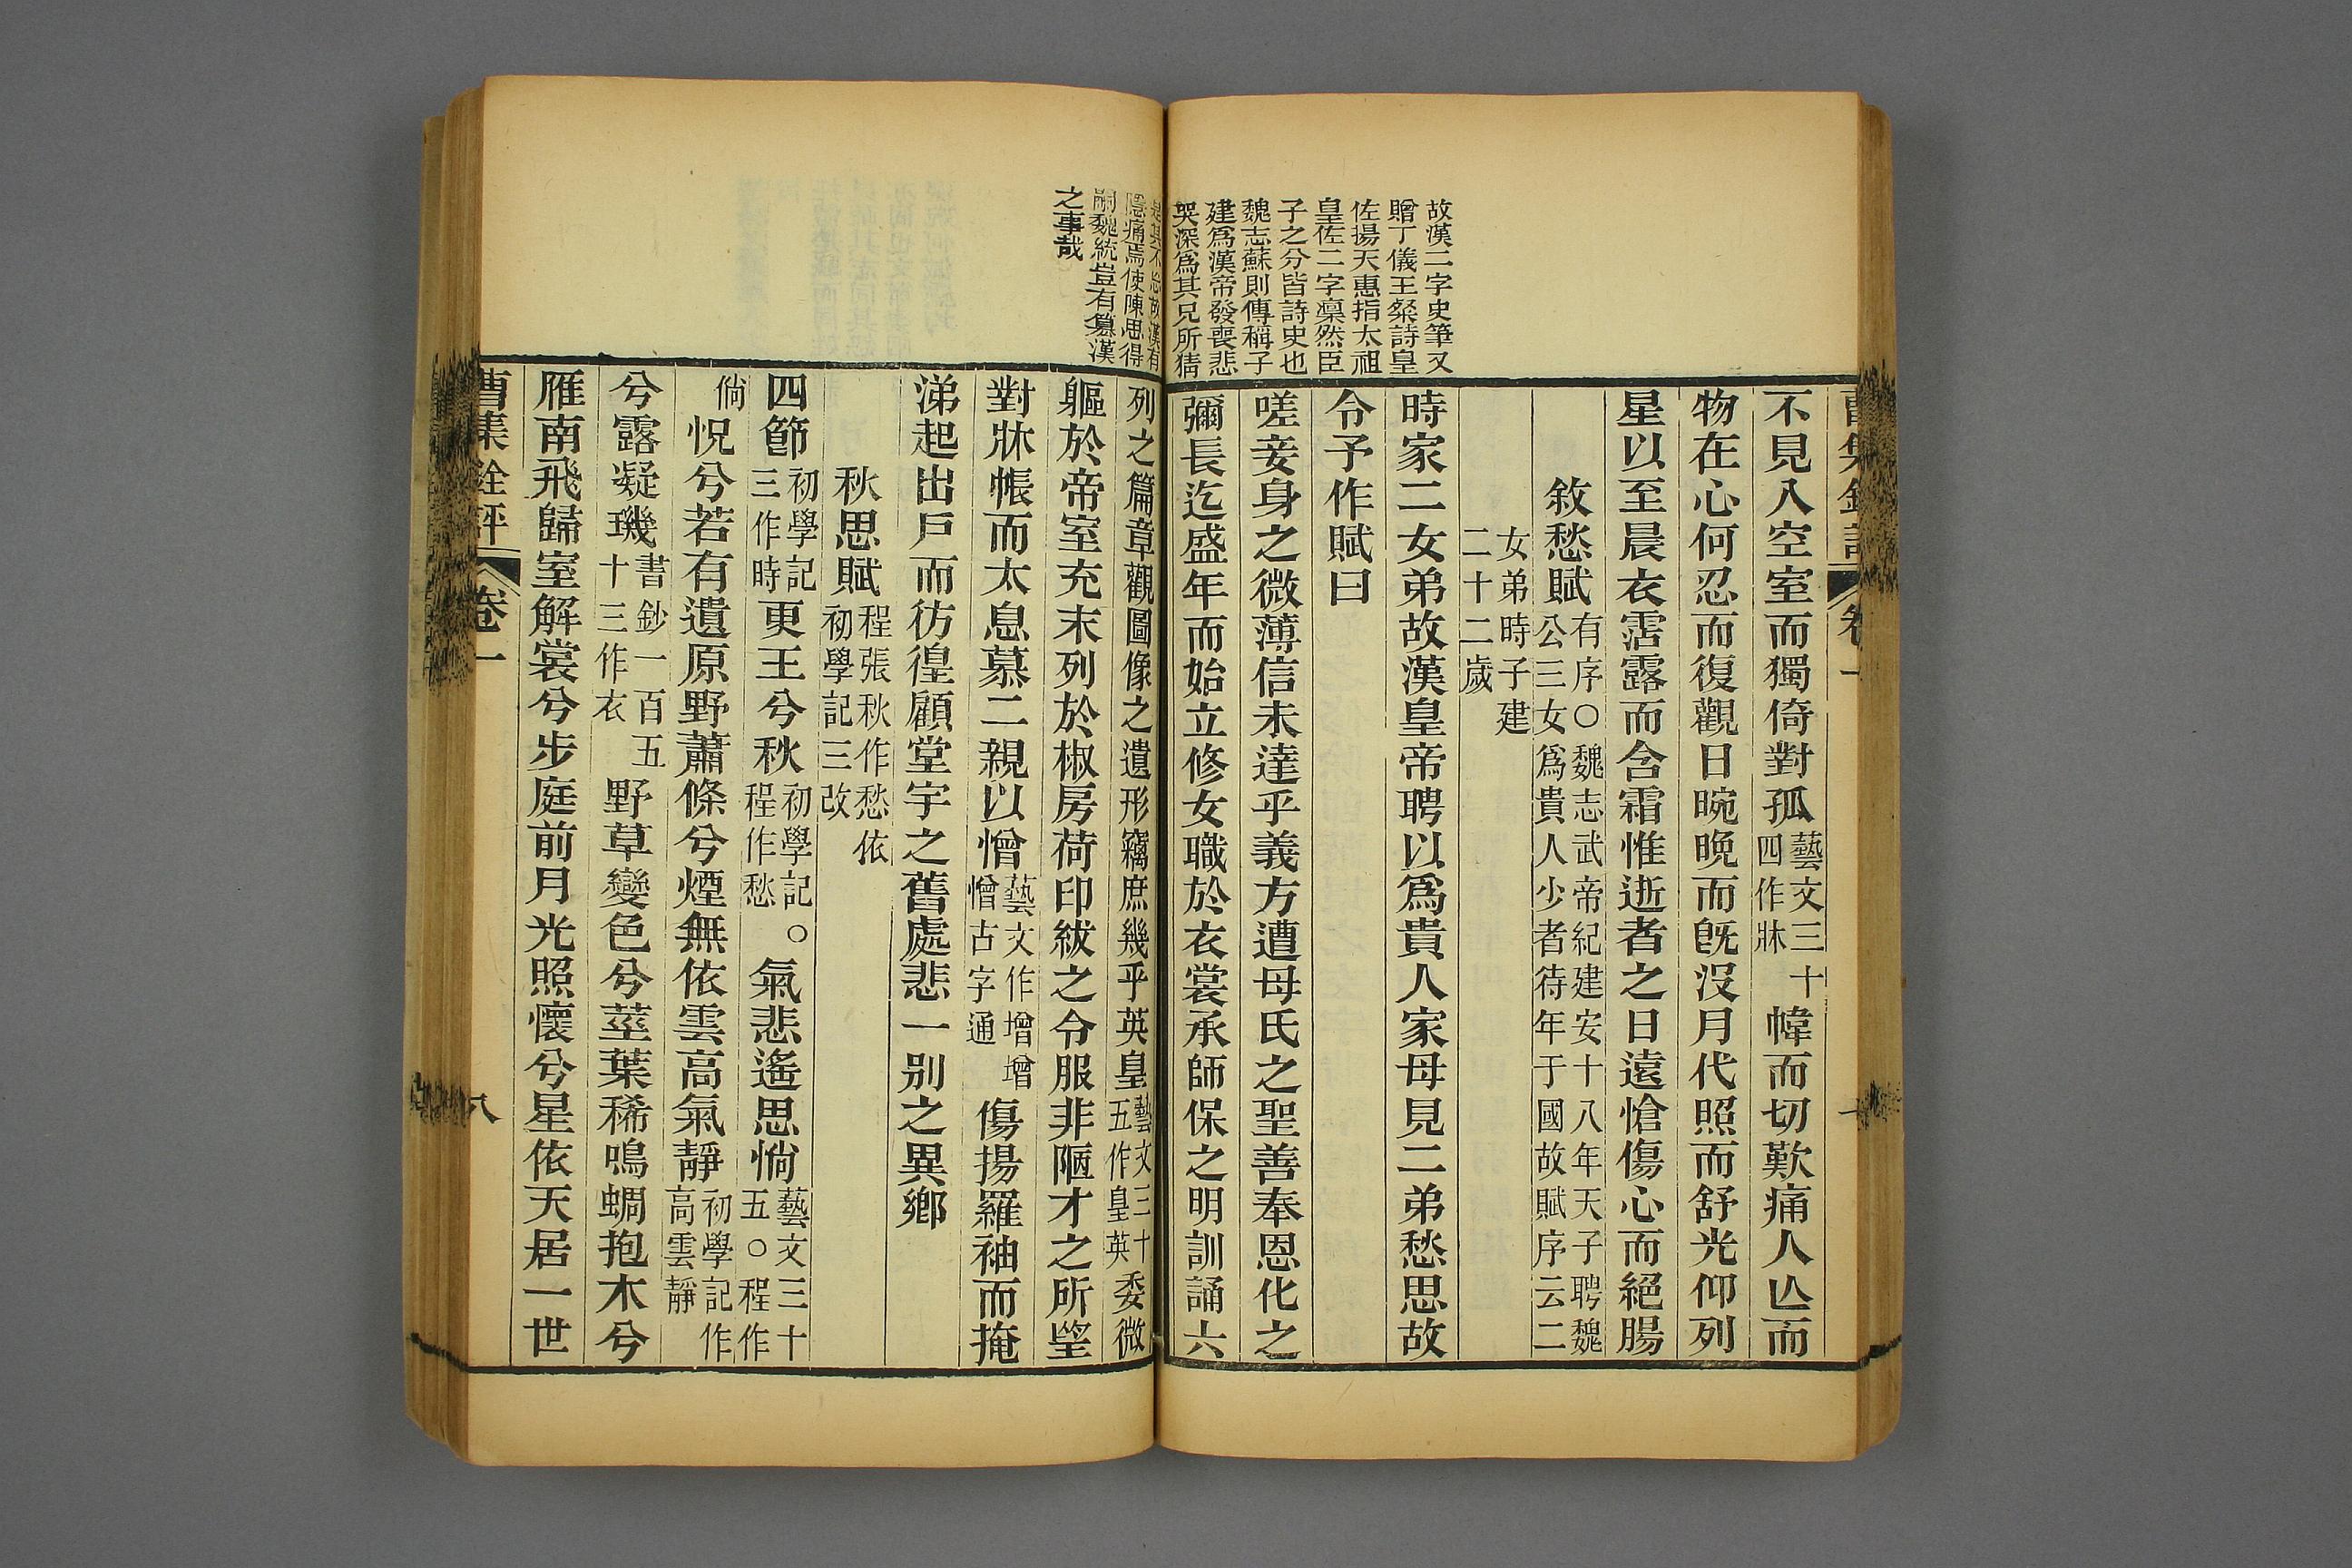 故漢二字史筆又
贈丁儀王粲詩皇
佐揚天惠指太祖
皇佐二字凜然臣
子之分皆詩史也
魏志蘇則傳稱子
建爲漢帝發喪悲
哭深爲其兄所猜
不見入空室而獨倚對孤藝文三十四作牀幃而切歎痛人亾而
物在心何忍而復觀日晼晚而旣沒月代照而舒光仰列
星以至晨衣霑露而含霜惟逝者之日遠愴傷心而絕腸
敘愁賦有序○魏志武帝紀建安十八年天子聘魏公三女爲貴人少者待年于國故賦序云二
女弟時子建二十二歲
時家二女弟故漢皇帝聘以爲貴人家母見二弟愁思故
令予作賦曰
嗟妾身之微薄信未達乎義方遭母氏之聖善奉恩化之
彌長迄盛年而始立修女職於衣裳承師保之明訓誦六
是其不忘故漢有
隱痛焉使陳思得
嗣魏統豈有簒漢
之事哉
列之篇章觀圖像之遺形竊庶幾乎英皇藝文三十五作皇英委微
軀於帝室充末列於椒房荷印紱之令服非陋才之所望
對牀帳而太息慕二親以憎藝文作增增憎古字通傷揚羅袖而掩
涕起出戶而彷徨顧堂宇之舊處悲一别之異鄉
秋思賦程張秋作愁依初學記三改
四節初學記三作時更王兮秋初學記程作愁。氣悲遙思惝藝文三十五○程作
倘怳兮若有遺原野蕭條兮煙無依雲高氣靜初學記作高雲靜
兮露凝璣書鈔一百五十三作衣野草變色兮莖葉稀鳴蜩抱木兮
雁南飛歸室解裳兮步庭前月光照懷兮星依天居一世
曹集銓評 卷一 八